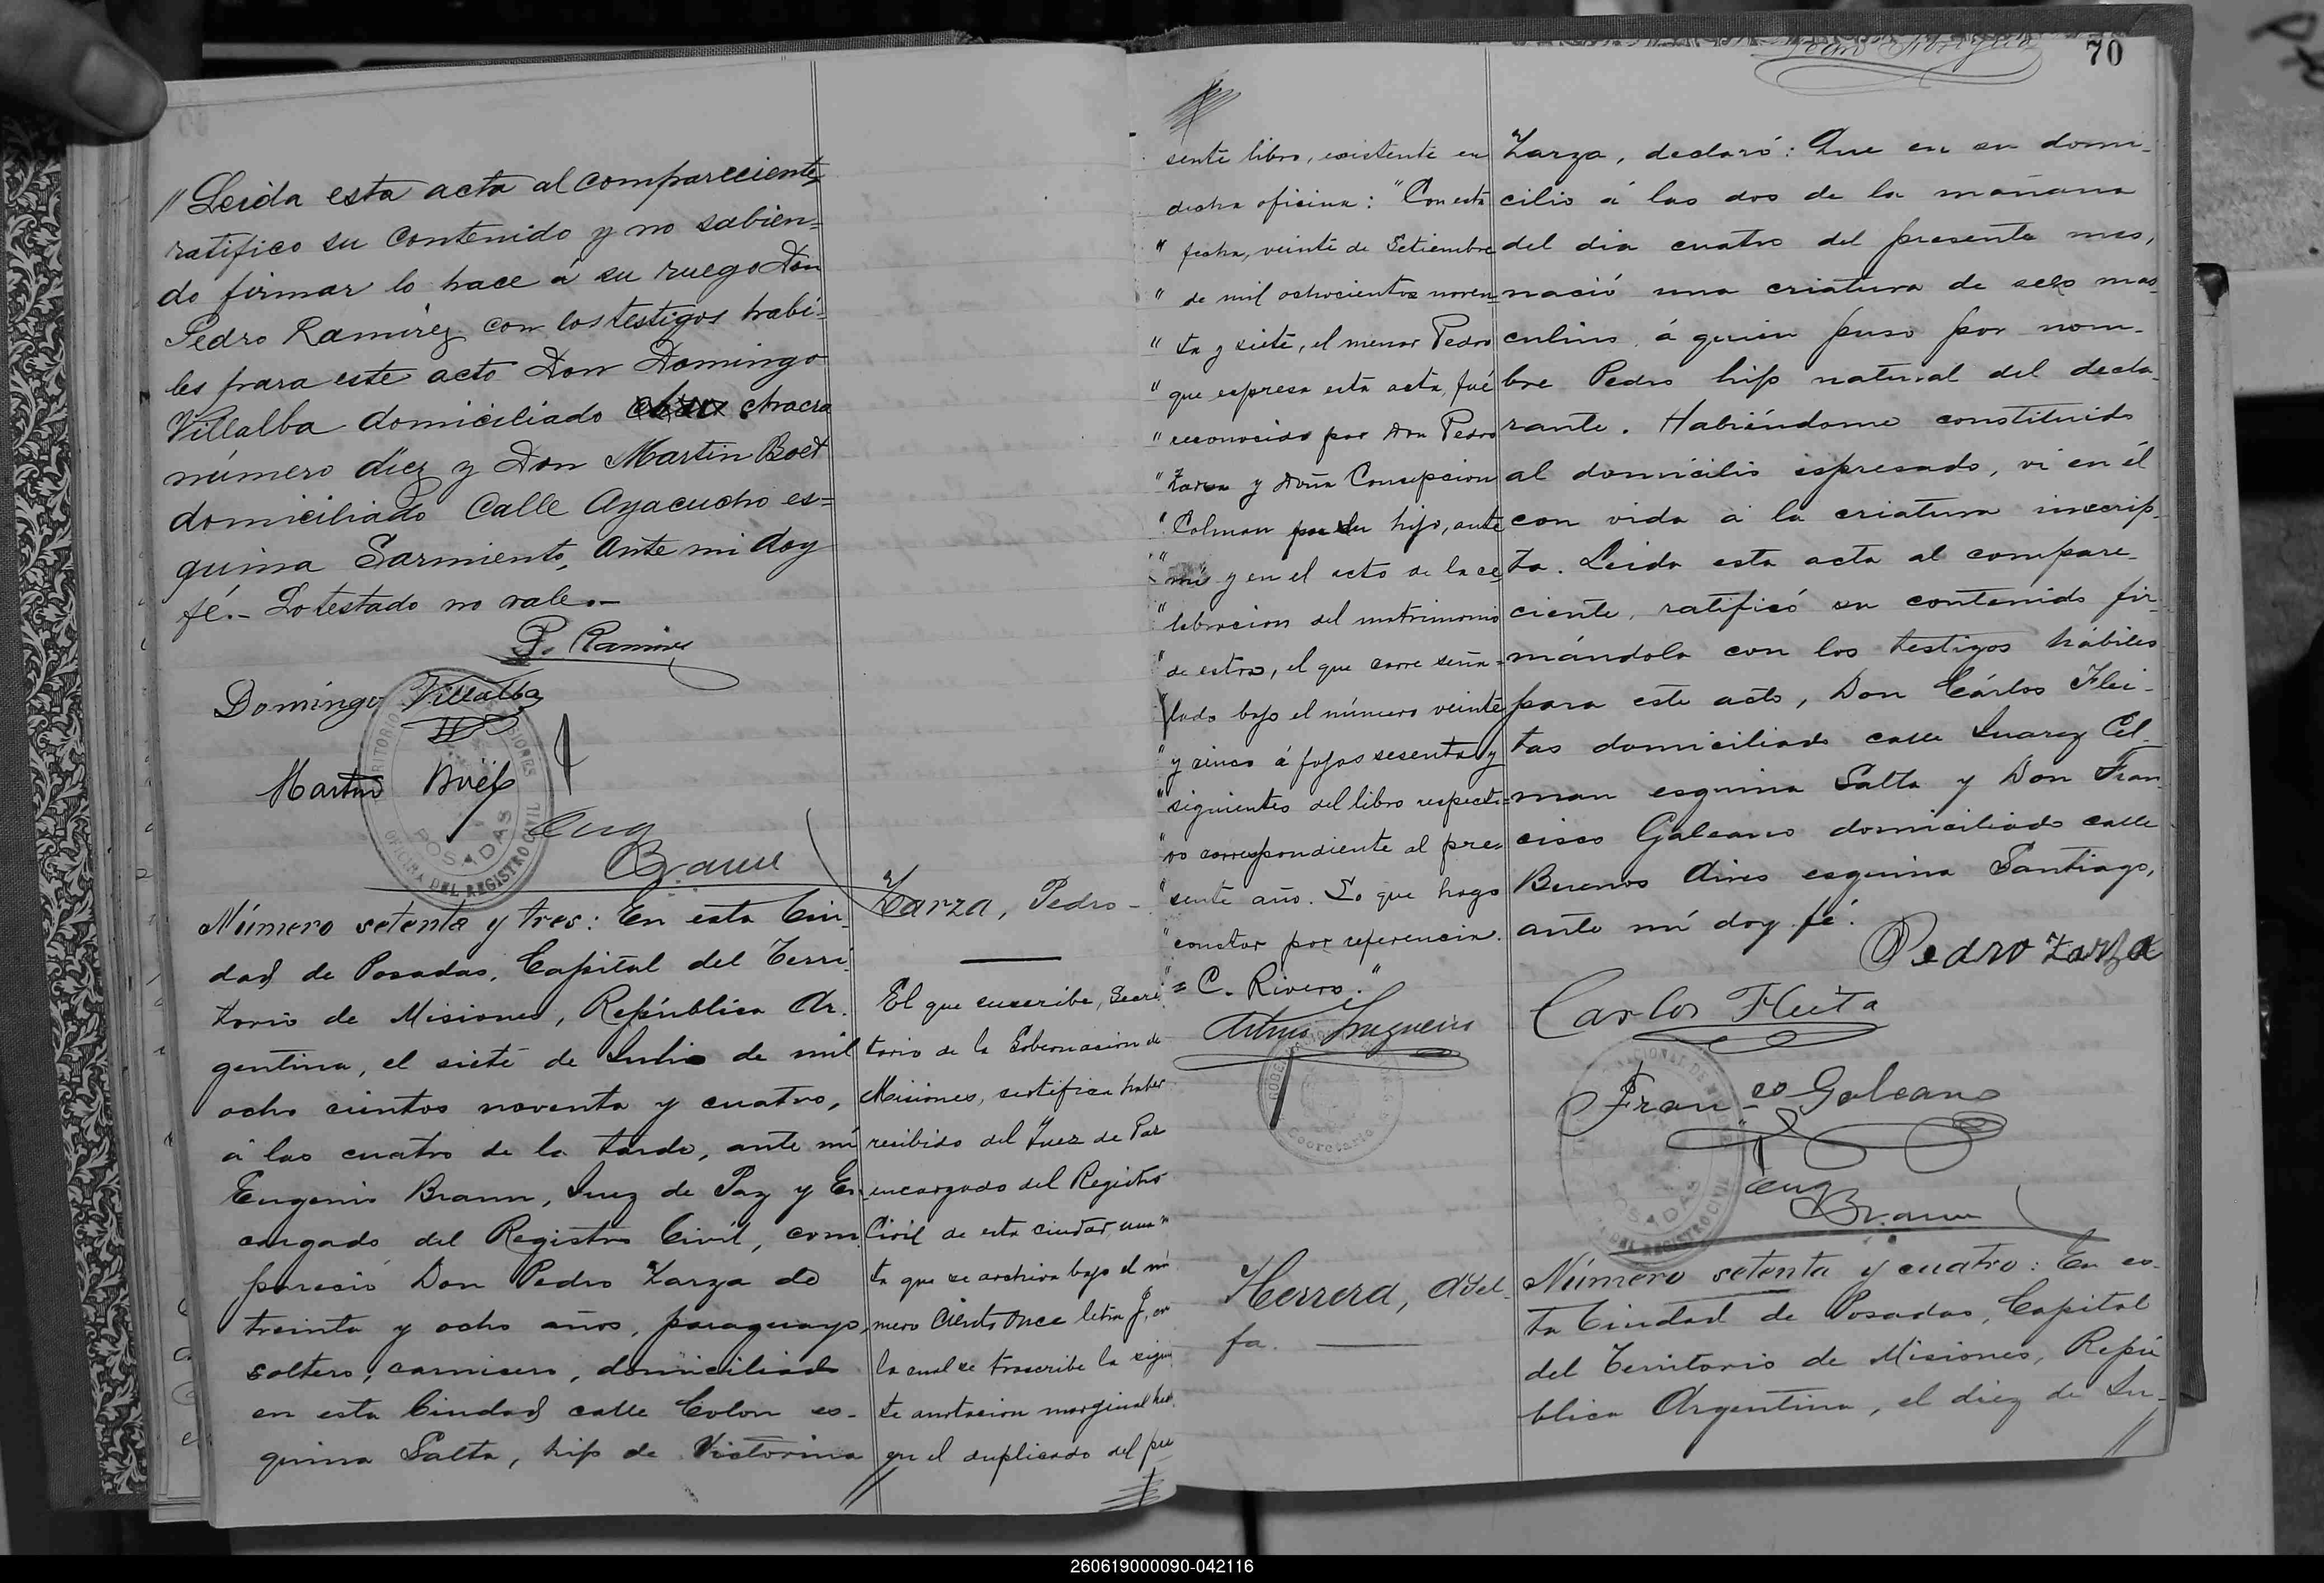 // Leida esta acta al compareciente
ratifico su contenido y no sabien=
do firmar lo hace á su ruego Don
Pedro Ramirez con los testigos habi-
les para este acto Don Domingo
Villalba domiciliado chacra
número diez y Don Martin Boet
domiciliado Calle Ayacucho es=
quina Sarmiento, Ante mi doy
fé.- Lo testado no vale.-
P. Ramirez
Domingo Villalba
Martin
Eug
Braun
POSADAS
OFICINA DEL REGISTRO CIVIL
Número setenta y tres: En esta Ciu-
dad de Posadas, Capital del Terri-
torio de Misiones, República Ar-
gentina, el siete de Julio de mil
ocho cientos noventa y cuatro,
á las cuatro de la tarde, ante mí
Eugenio Braun, Juez de Paz y En-
cargado del Registro Civil, com-
pareció Don Pedro Zarza de
treinta y ocho años, paraguayo,
soltero, carnicero, domiciliado
en esta Ciudad calle Colon es-
quina Salta, hijo de Victorina
//
Zarza, Pedro -
El que suscribe, Secre-
tario de la Gobernacion de
Misiones, certifica haber
recibido del Juez de Paz
encargado del Registro
Civil de esta ciudad, una no-
ta que se archiva bajo el nú-
mero Ciento Once letra J, en
la cual se trascribe la siguien-
te anotacion marginal hecha
en el duplicado del pre-
70
sente libro, existente en
dicha oficina: "Con esta
" fecha, veinte de Setiembre
" de mil ochocientos noven-
" ta y siete, el menor Pedro
" que espresa esta acta, fué
" reconocido por Don Pedro
" Zarza y Doña Concepcion
" Colman por su hijo, ante
" mí y en el acto de la ce
" lebracion del matrimonio
" de estos, el que corre seña-
" lado bajo el número veinte
" y cinco á fojas sesenta y
" siguientes del libro respecti-
" vo correspondiente al pre-
" sente año. Lo que hago
" constar por referencia.
" = C. Rivero."
Secretaria
Zarza, declaró: Que en su domi-
cilio á las dos de la mañana
del dia cuatro del presente mes,
nació una criatura de sexo mas-
culino á quien puso por nom-
bre Pedro hijo natural del decla-
rante. Habiéndome constituido
al domicilio espresado, vi en él
con vida á la criatura inscrip-
ta. Leida esta acta al compare-
ciente, ratificó su contenido fir-
mándola con los testigos hábiles
para este acto, Don Cárlos Flei-
tas domiciliado calle Juarez Cel-
man esquina Salta y Don Fran-
cisco Galeano domiciliado calle
Buenos Aires esquina Santiago,
ante mí doy fé.
Pedro Zarza
Carlos Fleita
Fran co Galeano
Eug
Braun
POSADAS
DEL REGISTRO CIVIL
Herrera, Adel-
fa.
Número setenta y cuatro: En es-
ta Ciudad de Posadas, Capital
del Territorio de Misiones, Repú
blica Argentina, el diez de Ju-
//
260619000090-042116